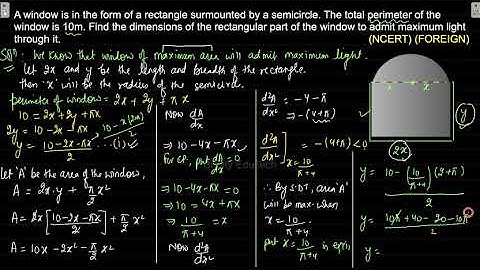 A window is in the form of a rectangle surmounted by a semicircle. The total perimeter of the
window is 10m. Find the dimensions of the rectangular part of the window to admit maximum light
through it. (NCERT) (FOREIGN)
Solⁿ: We know that window of maximum area will admit maximum light.
Let 2x and y be the length and breadth of the rectangle.
then 'x' will be the radius of the semicircle.
perimeter of window = 2x + 2y + πx
10 = 2x + 2y + πx
2y = 10 - 2x - πx
y = (10 - 2x - πx)/2 ...(i)
let 'A' be the area of the window,
A = 2x·y + π/2 x²
A = 2x[(10 - 2x - πx)/2] + π/2 x²
A = 10x - 2x² - π/2 x²
Now dA/dx
= 10 - 4x - πx
For CP, put dA/dx = 0
⇒ 10 - 4x - πx = 0
⇒ 10 = 4x + πx
⇒ 10/(π+4) = x
Now d²A/dx²
d²A/dx² = -4 - π
= -(4+π)
d²A/dx²]x = 10/(π+4) = -(4+π) < 0
∴ By S.D.T, area 'A'
will be max. when
x = 10/(π+4).
put x = 10/(π+4) in eqⁿ(i)
x x
y
2x
y = (10 - (10/(π+4))(2+π))/2
y = (10π + 40 - 20 - 10π)/2
y =